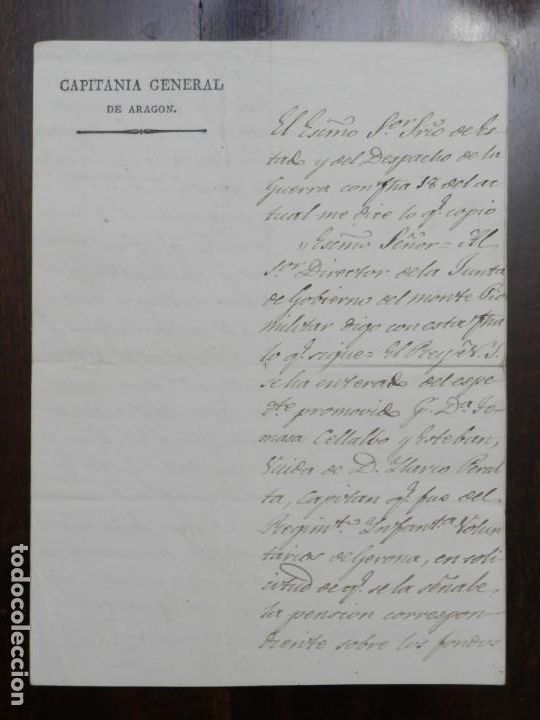 CAPITANIA GENERAL
DE ARAGON.
El Esc̃mo S.or Srio de Es-
tado y del Despacho de la
Guerra con fha 18 del ac-
tual me dice lo q.e copio
y Esc̃mo Señor = Al
S.or Director de la Junta
de Gobierno del monte Pio
militar digo con esta fha
lo q.e sigue = El Rey N. S.
se ha enterado del espe-
te promovido p.r D.a To-
masa Cellalbo y Esteban,
Viuda de D. Ilario Peral-
ta, Capitan q.e fue del
Regim.to Infant.a Volun-
tarios de Gerona, en soli-
citud de q.e se la señale
la pension correspon-
diente sobre los fondos
todocoleccion.net